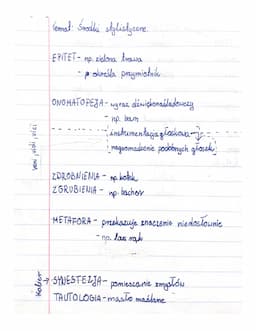 Temat: Środki stylistyczne.
EPITET - np. zielona trawa
- określa przymiotnik
ONOMATOPEJA - wyraz dźwiękonaśladowczy
- np. bam
(instrumentacja głoskowa →)
(nagromadzenie podobnych głosek)
veni, vidi, vici
ZDROBNIENIA - np. kotek
ZGRUBIENIA - np. bachor
METAFORA - przekazuje znaczenie niedosłownie
- np. las rąk
Kolor → SYNESTEZJA - pomieszanie zmysłów
TAUTOLOGIA - masło maślane